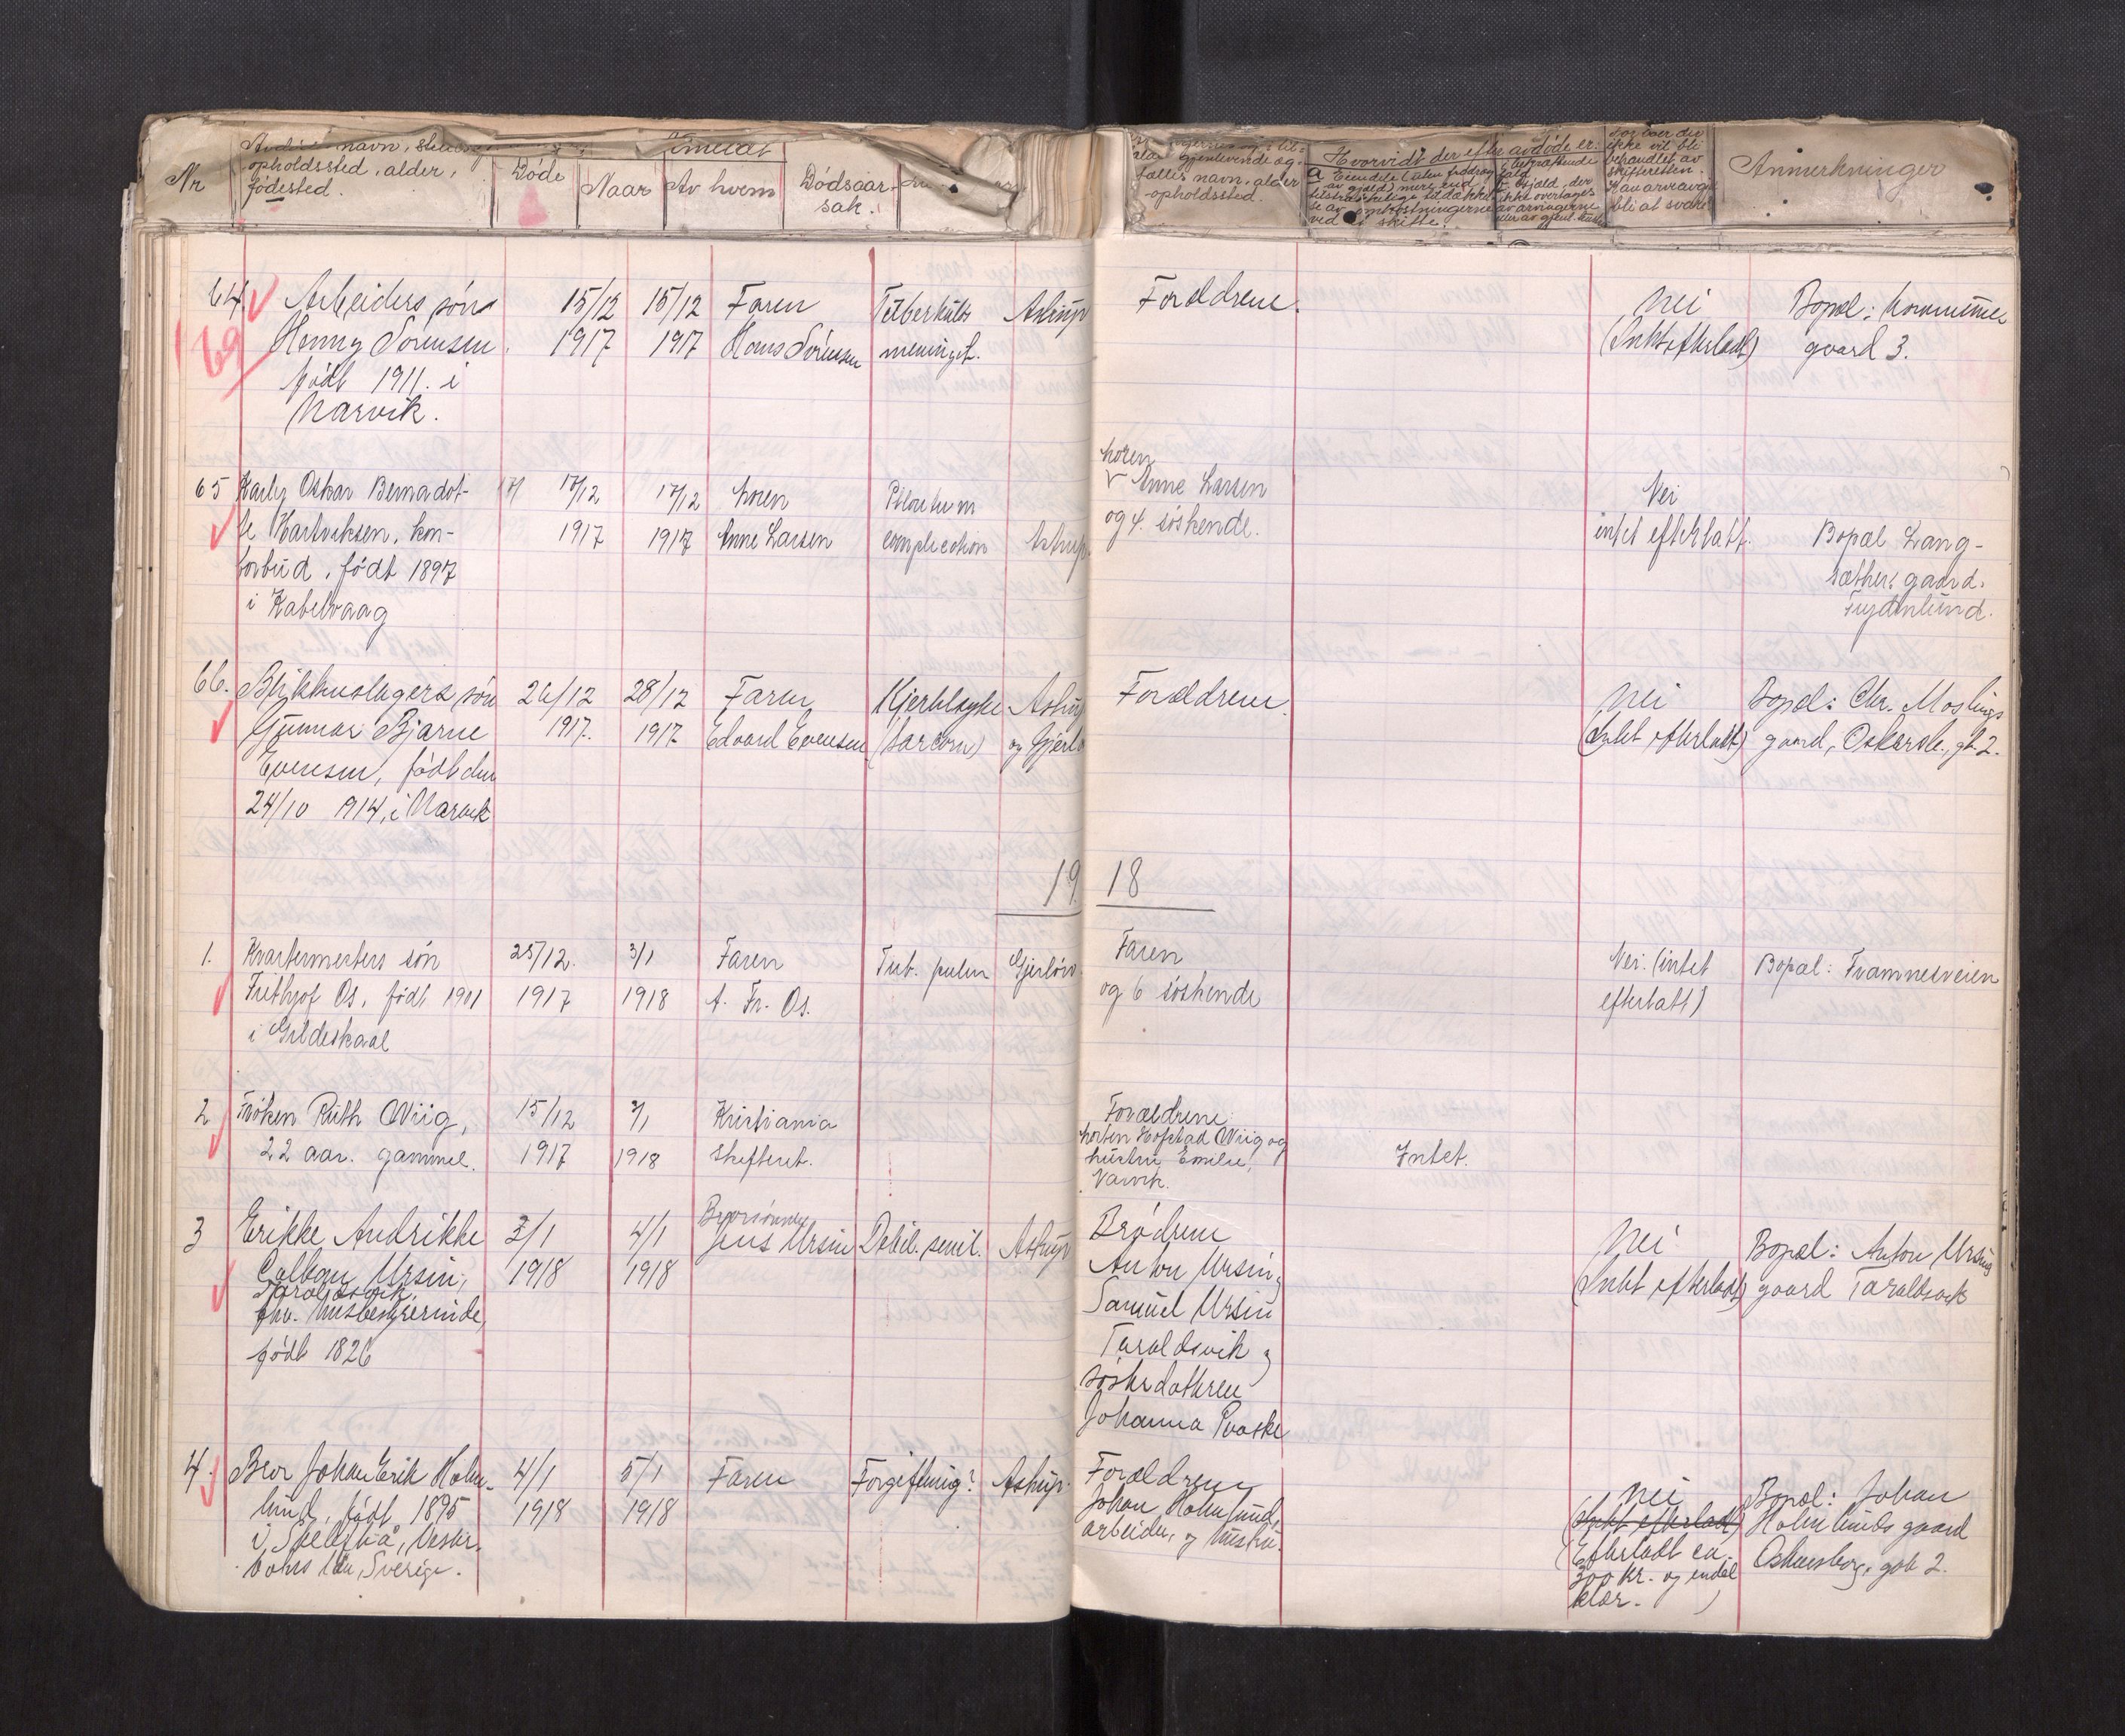 Nr
navn, stilling
opholdssted, alder,
fødested.
Døde
Anmeldt
Naar
Av hvem
Dødsaar-
sak.
gjenlevende æg-
tefælles navn, alder
opholdssted.
Hvorvidt der efter avdøde er:
a Eiendele (uten fradrag
av gjæld) mere end
tilstrækkelige til dække
se av omkostningerne
ved et skifte.
gjæld, der
ikke overtages
av arvingerne
ikke vil bli
behandlet av
skifteretten.
bli at svare
Anmerkninger
64. Arbeiders søn
Henny Sørensen
født 1911. i
Narvik.
69
15/12
1917
15/12
1917
Faren
Hans Sørensen
Tuberkuløs
meningit.
Astrup
Forældrene.
Nei
(Intet efterladt)
Bopæl: Kommune
gaard 3.
65 Karly Oskar Bernadot-
te Hartviksen, kon-
torbud, født 1897
i Kabelvaag
17/12
1917
17/12
1917
Moren
Anne Larsen
complication
Astrup
Moren
Anne Larsen
og 4. søskende.
Nei
intet efterlatt.
Bopæl Lang-
sæther, gaard.
Frydenlund.
66. Blikkenslagers søn
Gunnar Bjarne
Evensen, født den
24/10 1914, i Narvik
26/12
1917.
28/12
1917
Faren
Edvard Evensen
Kjertelsyke
(Sarcom)
Astrup
og Gjerløv
Forældrene.
Nei
(Intet efterladt)
Bopæl: Chr. Moslings
gaard, Oskarsb., gt. 2.
1918
1. Kvartermesters søn
Frithjof Os, født 1901
i Gildeskaal
25/12.
1917
3/1
1918
Faren
A. Fr. Os.
Tub. pulm
Gjerløv.
Faren
og 6 søskende
Nei. (intet
efterlatt)
Bopæl: Framnesveien
2 Frøken Ruth Wiig,
22 aar. gammel.
15/12
1917
3/1
1918
Kristiania
skifteret.
Forældrene
Morten Hofstad Wiig og
hustru Emilie,
Narvik.
Intet.
3 Erikke Andrikke
Colban Ursin,
Taraldsvik,
fhv. husbestyrerinde,
født 1826
3/1
1918
4/1
1918
Brorsønnen
Jens Ursin
Debil. senil.
Astrup
Brødrene
Anton Ursin,
Samuel Ursin
Taraldsvik og
søsterdatteren
Johanna Quaske
Nei
(Intet efterladt)
Bopæl: Anton Ursins
gaard Taraldsvik
4. Bror Johan Erik Holm-
lund, født 1895
i Skellefteå, Vester-
botns län, Sverige.
4/1
1918
5/1
1918
Faren
Forgiftning?
Astrup.
Forældrene
Johan Holmlund,
arbeider, og hustru.
Nei
(Intet efterladt)
(Efterladt ca.
300 kr. og endel
klær.)
Bopæl: Johan
Holmlunds gaard
Oskarsborg, gate 2.